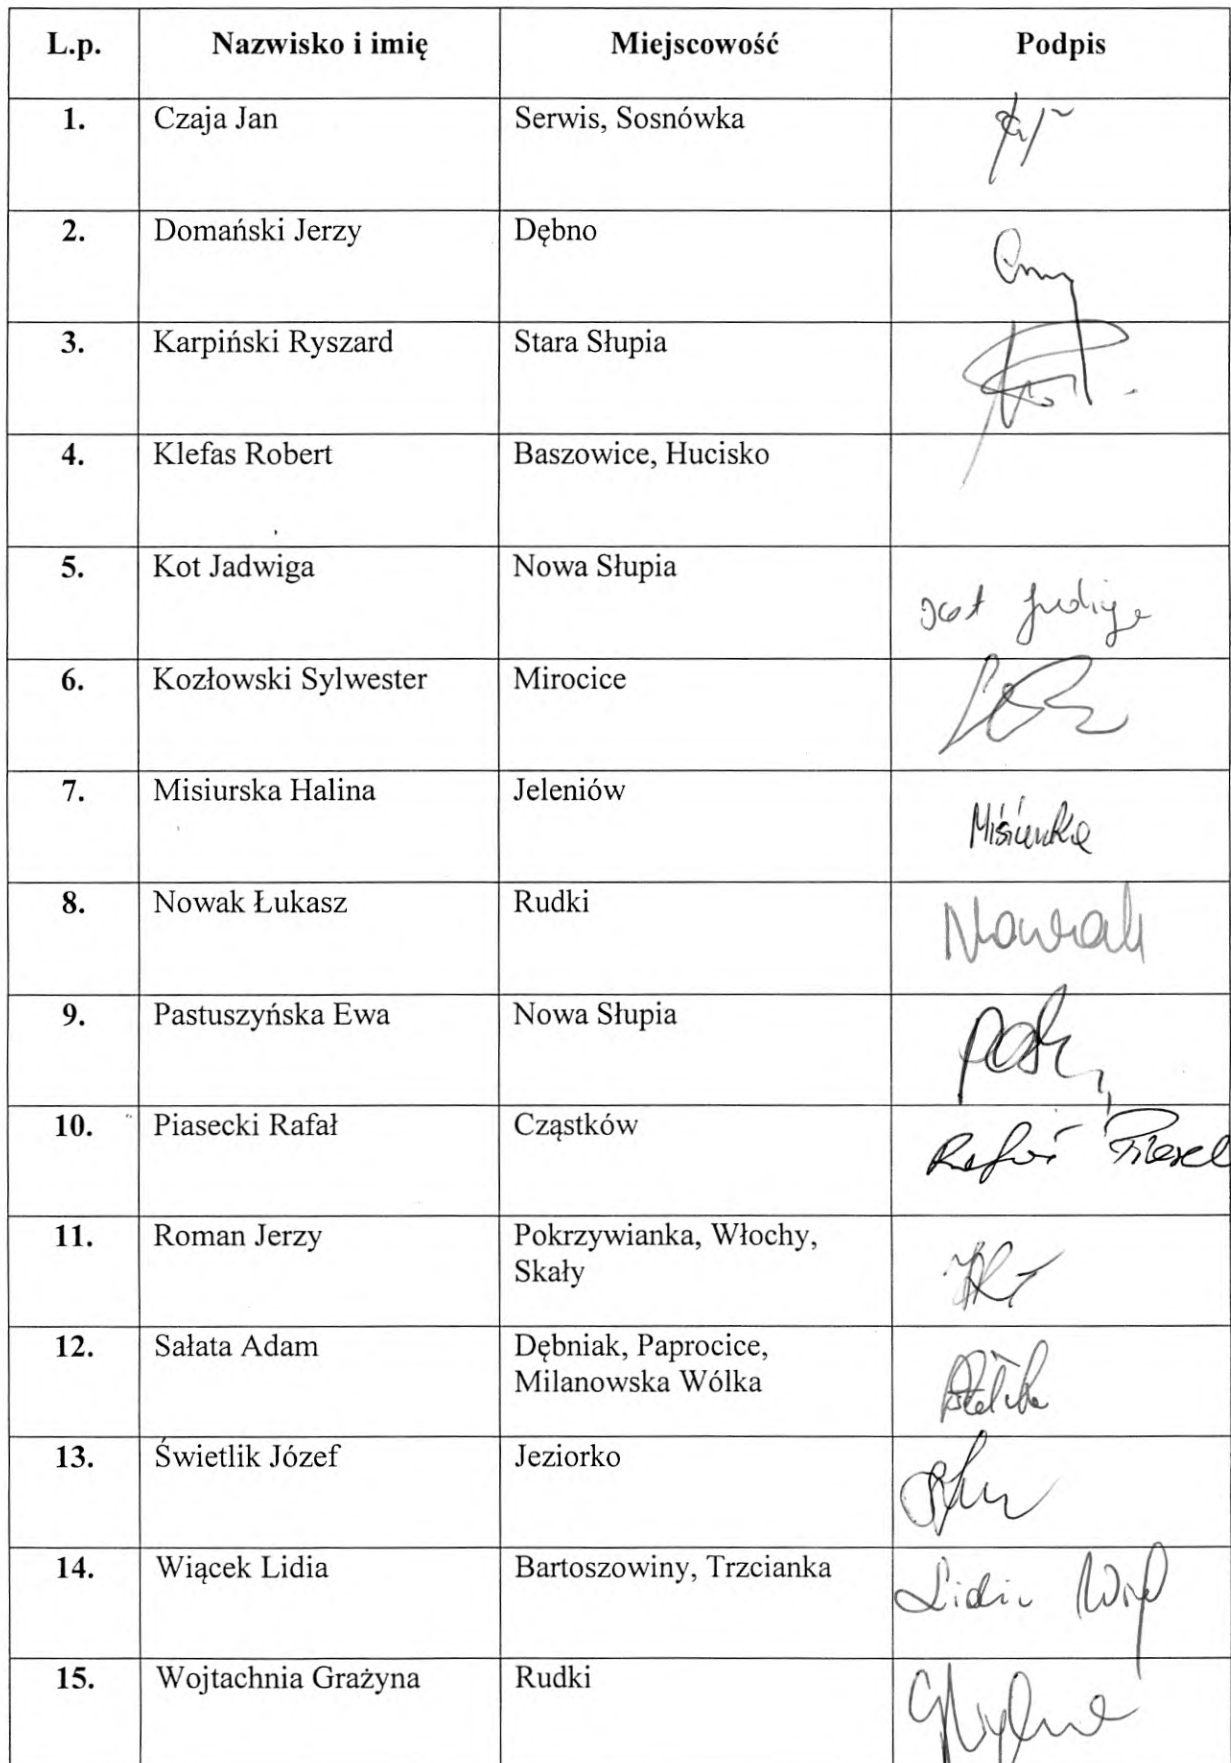 L.p. Nazwisko i imię Miejscowość Podpis
1. Czaja Jan Serwis, Sosnówka
2. Domański Jerzy Dębno
3. Karpiński Ryszard Stara Słupia
4. Klefas Robert Baszowice, Hucisko
5. Kot Jadwiga Nowa Słupia
6. Kozłowski Sylwester Mirocice
7. Misiurska Halina Jeleniów
8. Nowak Łukasz Rudki Nowak
9. Pastuszyńska Ewa Nowa Słupia
10. Piasecki Rafał Cząstków
11. Roman Jerzy Pokrzywianka, Włochy,
Skały
12. Sałata Adam Dębniak, Paprocice,
Milanowska Wólka
13. Świetlik Józef Jeziorko
14. Wiącek Lidia Bartoszowiny, Trzcianka
15. Wojtachnia Grażyna Rudki